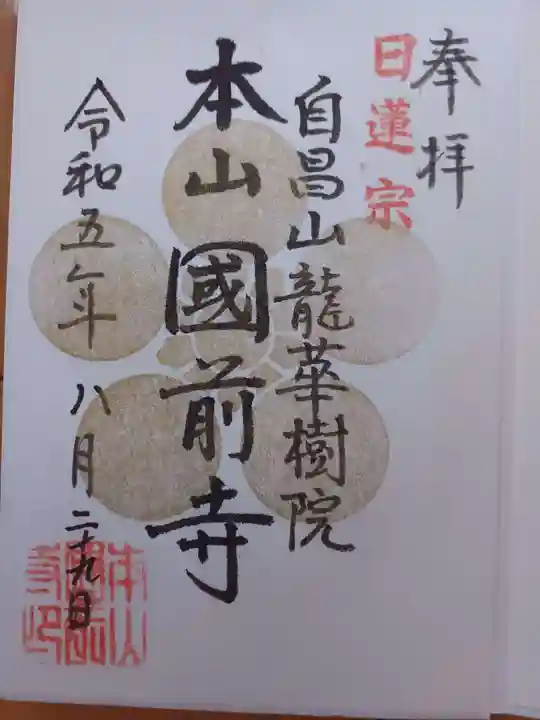 奉拝
日蓮宗
自昌山龍華樹院
本山國前寺
令和五年八月二十九日
本山國前寺印